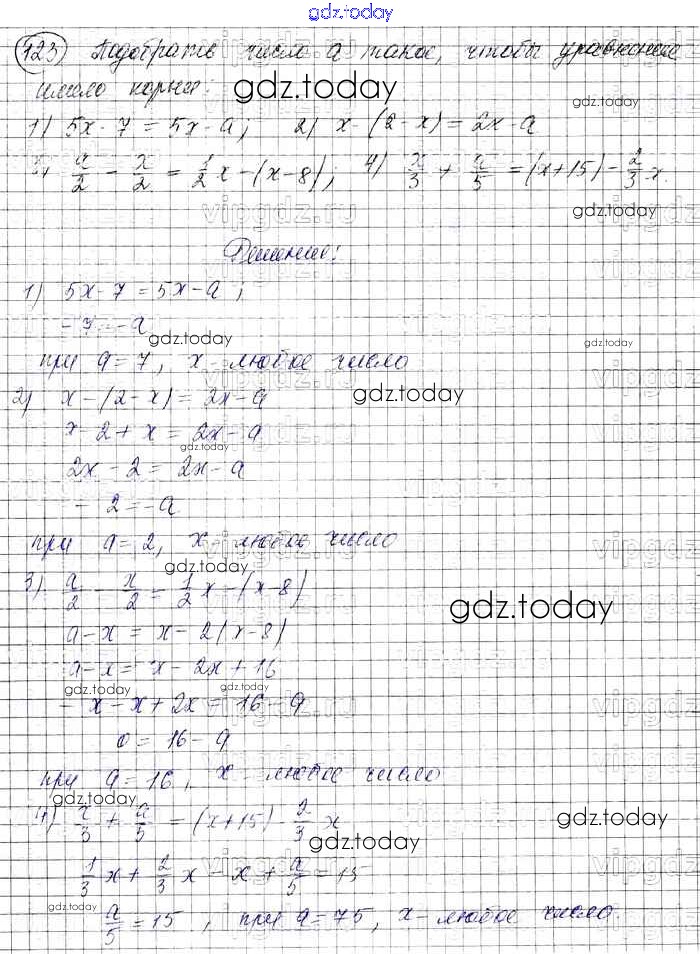 gdz.today
123) Подобрать число a такое, чтобы уравнение
имело корни:
gdz.today
gdz.today
1) 5x - 7 = 5x - a; 2) x - (2 - x) = 2x - a
3) a/2 - x/2 = 1/2 x - (x - 8); 4) x/3 + a/5 = (x + 15) - 2/3 x.
gdz.today
vipgdz.ru
Решение:
1) 5x - 7 = 5x - a;
-7 = -a
gdz.today
при a = 7, x - любое число
2) x - (2 - x) = 2x - a
gdz.today
x - 2 + x = 2x - a
gdz.today
2x - 2 = 2x - a
-2 = -a
при a = 2, x - любое число
gdz.today
3) a/2 - x/2 = 1/2 x - (x - 8)
gdz.today
a - x = x - 2(x - 8)
a - x = x - 2x + 16
gdz.today
gdz.today
- x - x + 2x = 16 - a
0 = 16 - a
при a = 16, x - любое число
gdz.today
4) x/3 + a/5 = (x + 15) - 2/3 x
gdz.today
gdz.today
1/3 x + 2/3 x - x + a/5 = 15
gdz.today
a/5 = 15, при a = 75, x - любое число.